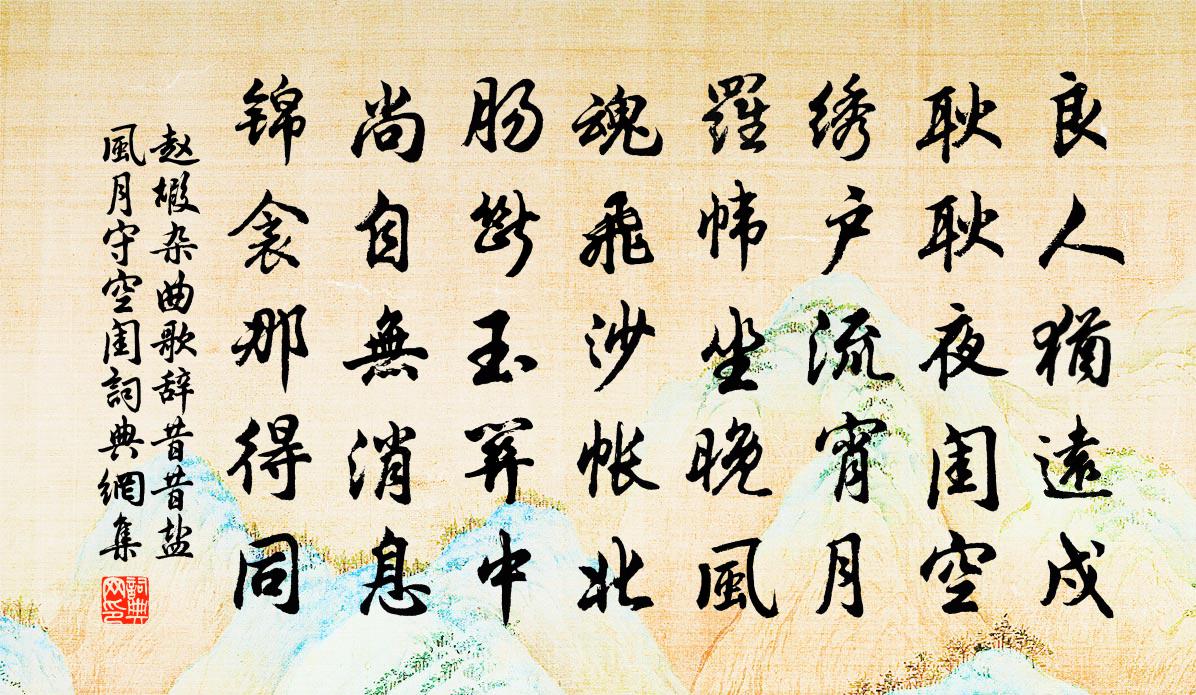 良人猶遠戍
耿耿夜閨空
绣户流宵月
羅帏坐晚風
魂飛沙帐北
肠斷玉関中
尚自無消息
锦衾那得同
赵嘏杂曲歌辞昔昔盐
風月守空閨詞典網集
詞典網印